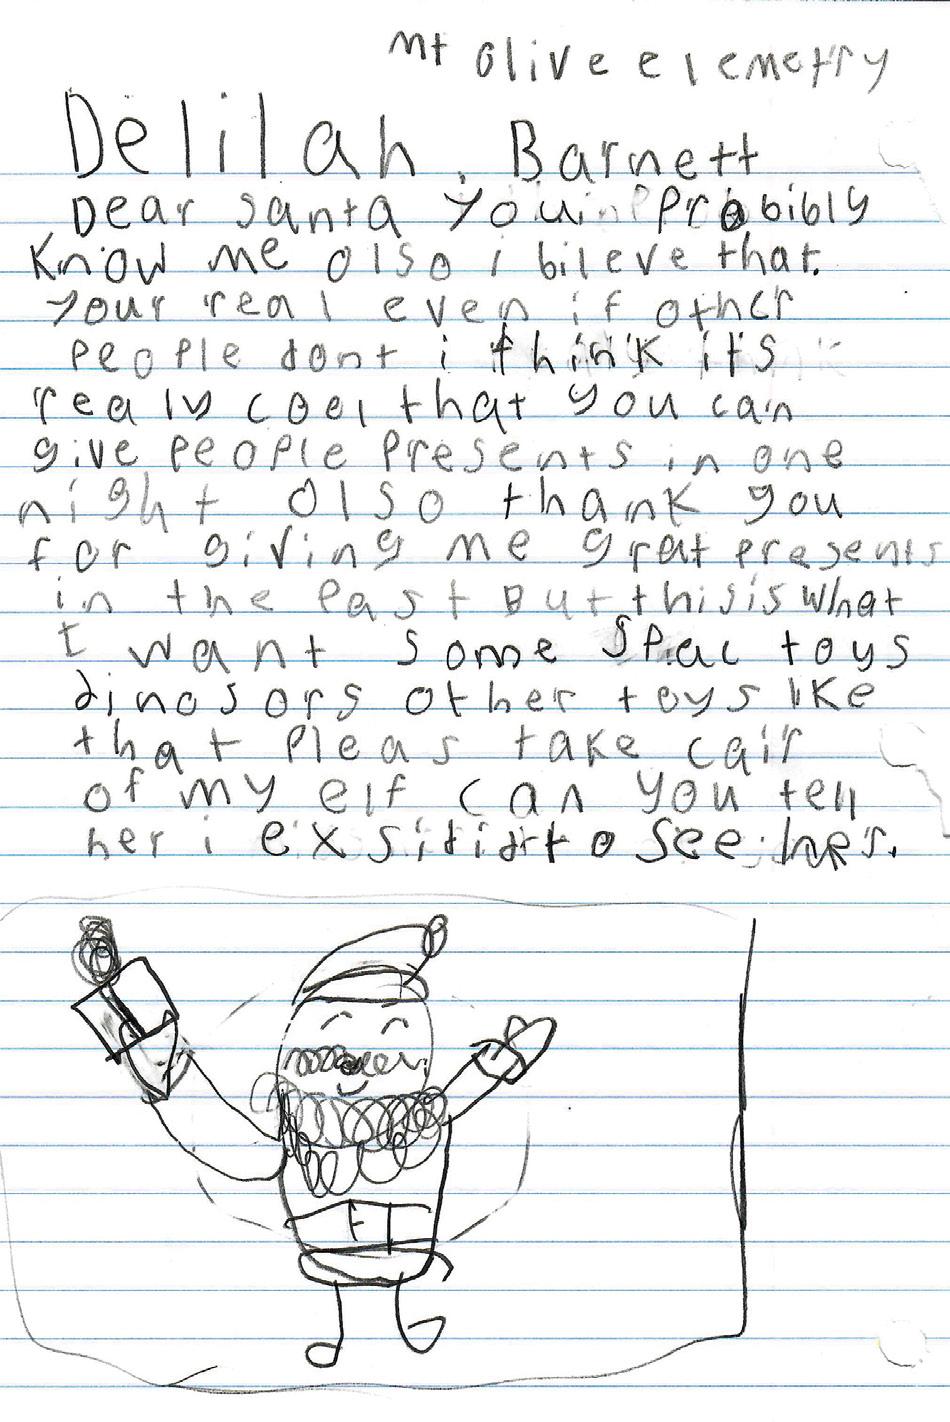 mt olive elemetry
Delilah. Barnett
Dear santa you probibly
Know me olso i bileve that.
your real even if other
people dont i think it's
realy cool that you can
give people presents in one
night olso thank you
for giving me great presents
in the past But this is what
I want some spac toys
dinosors other toys like
that pleas take cair
of my elf can you tell
her i exsitidt to see her.